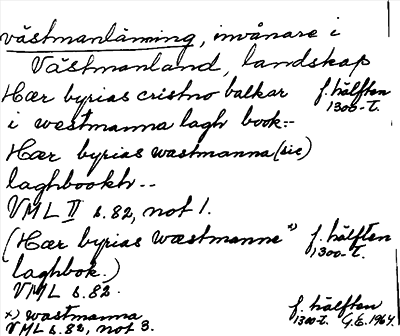 västmanlänning, invånare i
Västmanland, landskap
Hær byrias cristno balkar f. hälften
i westmanna lagh book:- 1300-t.
Hær byrias wastmanna (sic)
laghbookh--
VML II s. 82, not 1.
(Hær byrias wæstmanne x) f. hälften
laghbok.) 1300-t.
VML s. 82.
x) wastmanna f. hälften
VML s. 82, not 3. 1300-t. G.E. 1964.